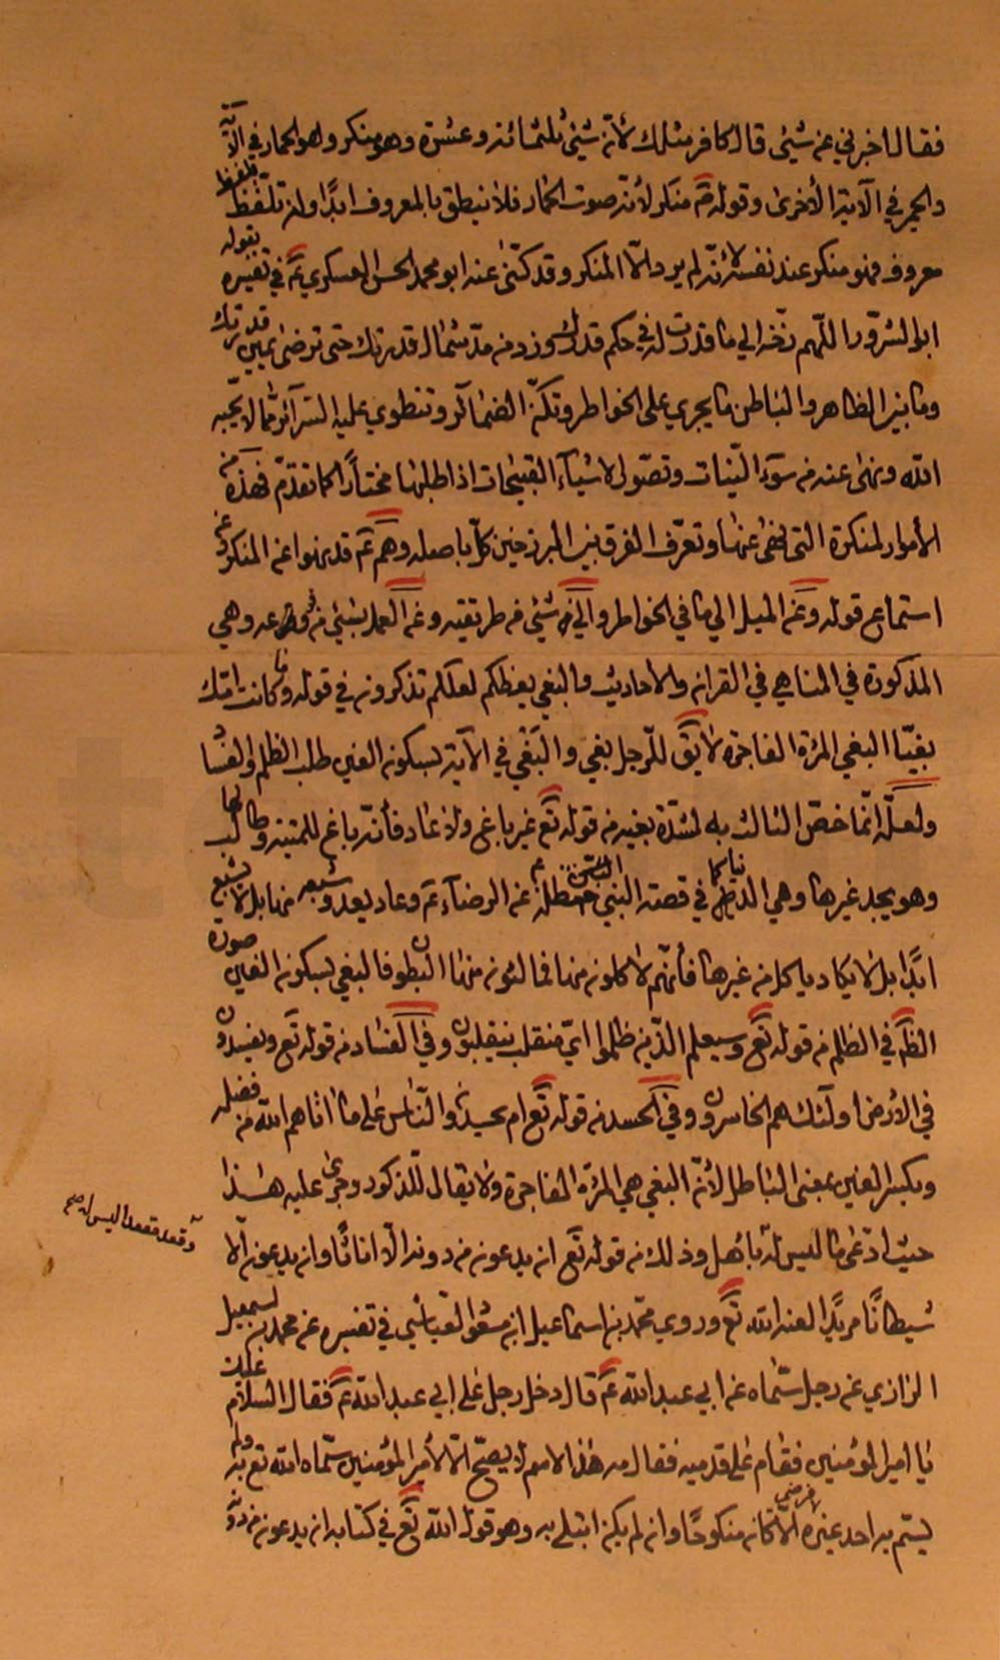 فقال اخبرني عن شيئ قال كافر مثلك لأنه شيئ ثلثمائة وعشرة وهو منكر وهو الحمار في الآية
والحمير في الآية الأخرى وقوله تع منكر لأنه صوت الحمار فلا ينطق بالمعروف ابدًا وان تلفظ تلفظا
معروف فهو منكر عند نفسه لأنه لم يرد الا المنكر وقد كنى عنه ابو محمد الحسن العسكري ع في تفسيره بقوله
ابو الشرور اللهم زخه الى ما قدرت له في حكم قدرك وزد منه مد شمال قدرتك حتى ترضى يمين قدرتك
وما بين الظاهر والباطن ما يجري على الخواطر وتكن الضمائر وتنطوي عليه السرائر مما لا يحبه
الله ونهى عنه من سوء النيات وتصور الاشياء القبيحات اذا طلبها مختارًا كما تقدم فهذه من
الأمور المنكرة التي نهى عنها وتعرف الفرق بين البرزخين كلا باصله وهم ع قد نهوا عن المنكر وعن
استماع قوله وعن الميل الى ما في الخواطر والى شيئ من طريقته وعن العمل بشيئ من فروعه وهي
المذكورة في المناهي في القران والاحاديث والبغي يعظكم لعلكم تذكرون في قوله وما كانت امك
بغيّا البغي المرءة الفاجرة لا يق للرجل بغي والبَغْي في الآية بسكون الغين طلب الظلم والفسا
ولعله انما خص الثالث به لشدة بغيه من قوله تع غير باغ ولا عاد فأنه باغ للميتة وطالب لها
وهو يجد غيرها وهي الدنيا كما في قصة النبي عن الرضا ع وعاد يعدو شبعه منها بل لا يشبع
ابدًا بل لا يكاد ياكل من غيرها فأنهم لا كلون منها فمالئون منها البطون فالبغي بسكون الغين صورة
الظلم في الظلم من قوله تع وسيعلم الذين ظلموا اي منقلب ينقلبون وفي الفساد من قوله تع ويفسدون
في الارض اولئك هم الخاسرون وفي الحسد من قوله تع ام يحسدون الناس على ما اتاهم الله من فضله
وبكسر الغين بمعنى الباطل لأن البغي هي المرءة الفاجرة ولا يقال للذكور وجرى عليه هذا
حيث ادعى ما ليس له باهل وذلك من قوله تع ان يدعون من دونه الا اناثًا وان يدعون الا
وقعد مقعدا ليس له صح
شيطانًا مريدًا لعنه الله تع وروى محمد بن اسماعيل ابن مسعود العياشي في تفسيره عن محمد بن اسمعيل
الرازي عن رجل سماه عن ابي عبد الله ع قال دخل رجل على ابي عبد الله ع فقال السلام عليك
يا امير المؤمنين فقام على قدميه فقال مه هذا الاسم لا يصلح الا لأمير المؤمنين سماه الله تع به ولم
يسم به احد غيره فرضي الا كان منكوحًا وان لم يكن ابتلى به وهو قول الله تع في كتابه ان يدعون من دو